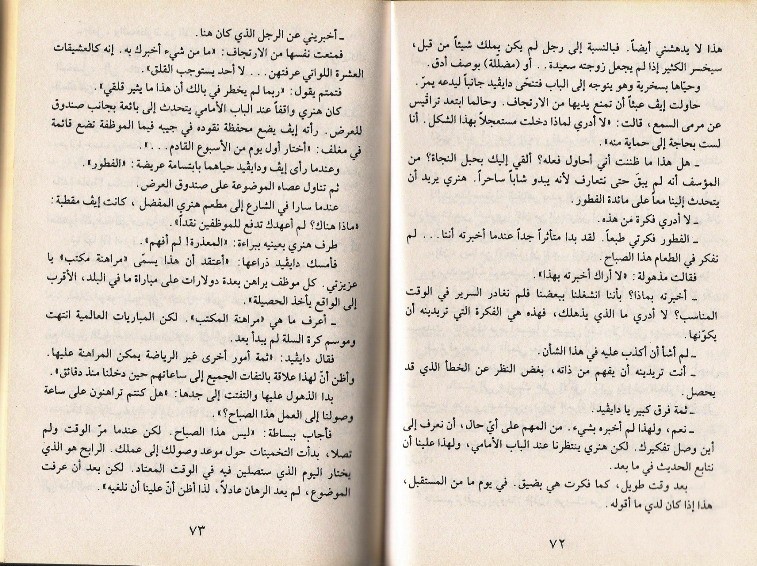 هذا لا يدهشني أيضاً. فبالنسبة إلى رجل لم يكن يملك شيئاً من قبل،
سيخسر الكثير إذا لم يجعل زوجته سعيدة.. أو (مضللة) بوصف أدق.
وحيّاها بسخرية وهو يتوجه إلى الباب فتنحّى دايڤيد جانباً ليدعه يمرّ.
حاولت إيڤ عبثاً أن تمنع يديها من الارتجاف. وحالما ابتعد تراڤيس
عن مرمى السمع، قالت: «لا أدري لماذا دخلت مستعجلاً بهذا الشكل. أنا
لست بحاجة إلى حماية منه».
ـ هل هذا ما ظننت أني أحاول فعله؟ ألقي إليك بحبل النجاة؟ من
المؤسف أنه لم يبقَ حتى نتعارف لأنه يبدو شاباً ساحراً. هنري يريد أن
يتحدث إلينا معاً على مائدة الفطور.
ـ لا أدري فكرة من هذه.
ـ الفطور فكرتي طبعاً. لقد بدا متأثراً جداً عندما أخبرته أننا... لم
نفكر في الطعام هذا الصباح.
فقالت مذهولة: «لا أراك أخبرته بهذا».
ـ أخبرته بماذا؟ بأننا انشغلنا ببعضنا فلم نغادر السرير في الوقت
المناسب؟ لا أدري ما الذي يذهلك، فهذه هي الفكرة التي تريدينه أن
يكوّنها.
ـ لم أشأ أن أكذب عليه في هذا الشأن.
ـ أنت تريدينه أن يفهم من ذاته، بغض النظر عن الخطأ الذي قد
يحصل.
ـ ثمة فرق كبير يا دايڤيد.
ـ نعم، ولهذا لم أخبره بشيء. من المهم على أيّ حال، أن نعرف إلى
أين وصل تفكيرك. لكن هنري ينتظرنا عند الباب الأمامي، ولهذا علينا أن
نتابع الحديث في ما بعد.
بعد وقت طويل، كما فكرت هي بضيق. في يوم ما من المستقبل،
هذا إذا كان لدي ما أقوله.
٧٢
ـ أخبريني عن الرجل الذي كان هنا.
فمنعت نفسها من الارتجاف: «ما من شيء أخبرك به. إنه كالعشيقات
العشرة اللواتي عرفتهن... لا أحد يستوجب القلق».
فتمتم يقول: «ربما لم يخطر في بالك أن هذا ما يثير قلقي».
كان هنري واقفاً عند الباب الأمامي يتحدث إلى بائعة بجانب صندوق
للعرض. رأته إيڤ يضع محفظة نقوده في جيبه فيما الموظفة تضع قائمة
في مغلف: «أختار أول يوم من الأسبوع القادم...».
وعندما رأى إيڤ ودايڤيد حياهما بابتسامة عريضة: «الفطور».
ثم تناول عصاه الموضوعة على صندوق العرض.
عندما سارا في الشارع إلى مطعم هنري المفضل، كانت إيڤ مقطبة:
«ماذا هناك؟ لم أعهدك تدفع للموظفين نقداً».
طرف هنري بعينيه ببراءة: «المعذرة! لم أفهم».
فأمسك دايڤيد ذراعها: «أعتقد أن هذا يسمّى «مراهنة مكتب» يا
عزيزتي. كل موظف يراهن بعدة دولارات على مباراة ما في البلد، الأقرب
إلى الواقع يأخذ الحصيلة».
ـ أعرف ما هي «مراهنة المكتب». لكن المباريات العالمية انتهت
وموسم كرة السلة لم يبدأ بعد.
فقال دايڤيد: «ثمة أمور أخرى غير الرياضة يمكن المراهنة عليها.
وأظن أنّ لهذا علاقة بالتفات الجميع إلى ساعاتهم حين دخلنا منذ دقائق».
بدا الذهول عليها والتفتت إلى جدها: «هل كنتم تراهنون على ساعة
وصولنا إلى العمل هذا الصباح؟».
فأجاب ببساطة: «ليس هذا الصباح. لكن عندما مرّ الوقت ولم
تصلا، بدأت التخمينات حول موعد وصولك إلى عملك. الرابح هو الذي
يختار اليوم الذي ستصلين فيه في الوقت المعتاد. لكن بعد أن عرفت
الموضوع، لم يعد الرهان عادلاً، لذا أظن أنّ علينا أن نلغيه».
٧٣